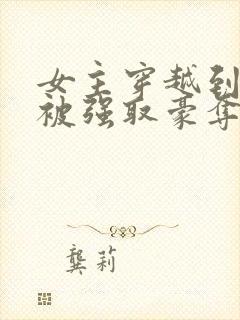 女主穿越到
被强取豪夺
龚莉